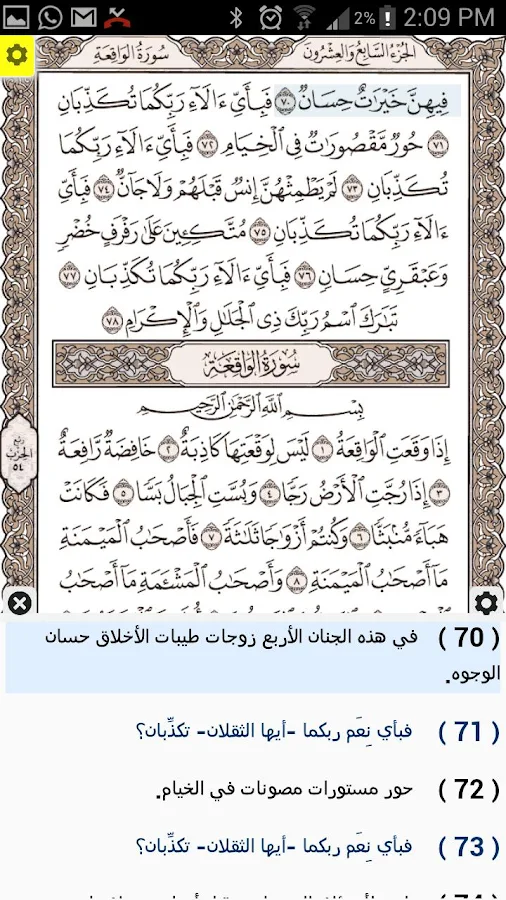 2% 2:09 PM
سُورَةُ الوَاقِعَةِ
الجُزْءُ السَّابِعُ وَالعِشْرُونَ
فِيهِنَّ خَيْرَٰتٌ حِسَانٌ ٧٠ فَبِأَىِّ ءَالَآءِ رَبِّكُمَا تُكَذِّبَانِ
٧١ حُورٌ مَّقْصُورَٰتٌ فِى ٱلْخِيَامِ ٧٢ فَبِأَىِّ ءَالَآءِ رَبِّكُمَا
تُكَذِّبَانِ ٧٣ لَمْ يَطْمِثْهُنَّ إِنسٌ قَبْلَهُمْ وَلَا جَآنٌّ ٧٤ فَبِأَىِّ
ءَالَآءِ رَبِّكُمَا تُكَذِّبَانِ ٧٥ مُتَّكِـِٔينَ عَلَىٰ رَفْرَفٍ خُضْرٍ
وَعَبْقَرِىٍّ حِسَانٍ ٧٦ فَبِأَىِّ ءَالَآءِ رَبِّكُمَا تُكَذِّبَانِ ٧٧
تَبَٰرَكَ ٱسْمُ رَبِّكَ ذِى ٱلْجَلَٰلِ وَٱلْإِكْرَامِ ٧٨
سُورَةُ الوَاقِعَةِ
بِسْمِ ٱللَّهِ ٱلرَّحْمَٰنِ ٱلرَّحِيمِ
إِذَا وَقَعَتِ ٱلْوَاقِعَةُ ١ لَيْسَ لِوَقْعَتِهَا كَاذِبَةٌ ٢ خَافِضَةٌ رَّافِعَةٌ
٣ إِذَا رُجَّتِ ٱلْأَرْضُ رَجًّا ٤ وَبُسَّتِ ٱلْجِبَالُ بَسًّا ٥ فَكَانَتْ
هَبَآءً مُّنۢبَثًّا ٦ وَكُنتُمْ أَزْوَٰجًا ثَلَٰثَةً ٧ فَأَصْحَٰبُ ٱلْمَيْمَنَةِ
مَآ أَصْحَٰبُ ٱلْمَيْمَنَةِ ٨ وَأَصْحَٰبُ ٱلْمَشْـَٔمَةِ مَآ أَصْحَٰبُ
ربع
الحزب
٥٤
( 70 ) في هذه الجنان الأربع زوجات طيبات الأخلاق حسان
الوجوه.
( 71 ) فبأي نِعَم ربكما -أيها الثقلان- تكذِّبان؟
( 72 ) حور مستورات مصونات في الخيام.
( 73 ) فبأي نِعَم ربكما -أيها الثقلان- تكذِّبان؟